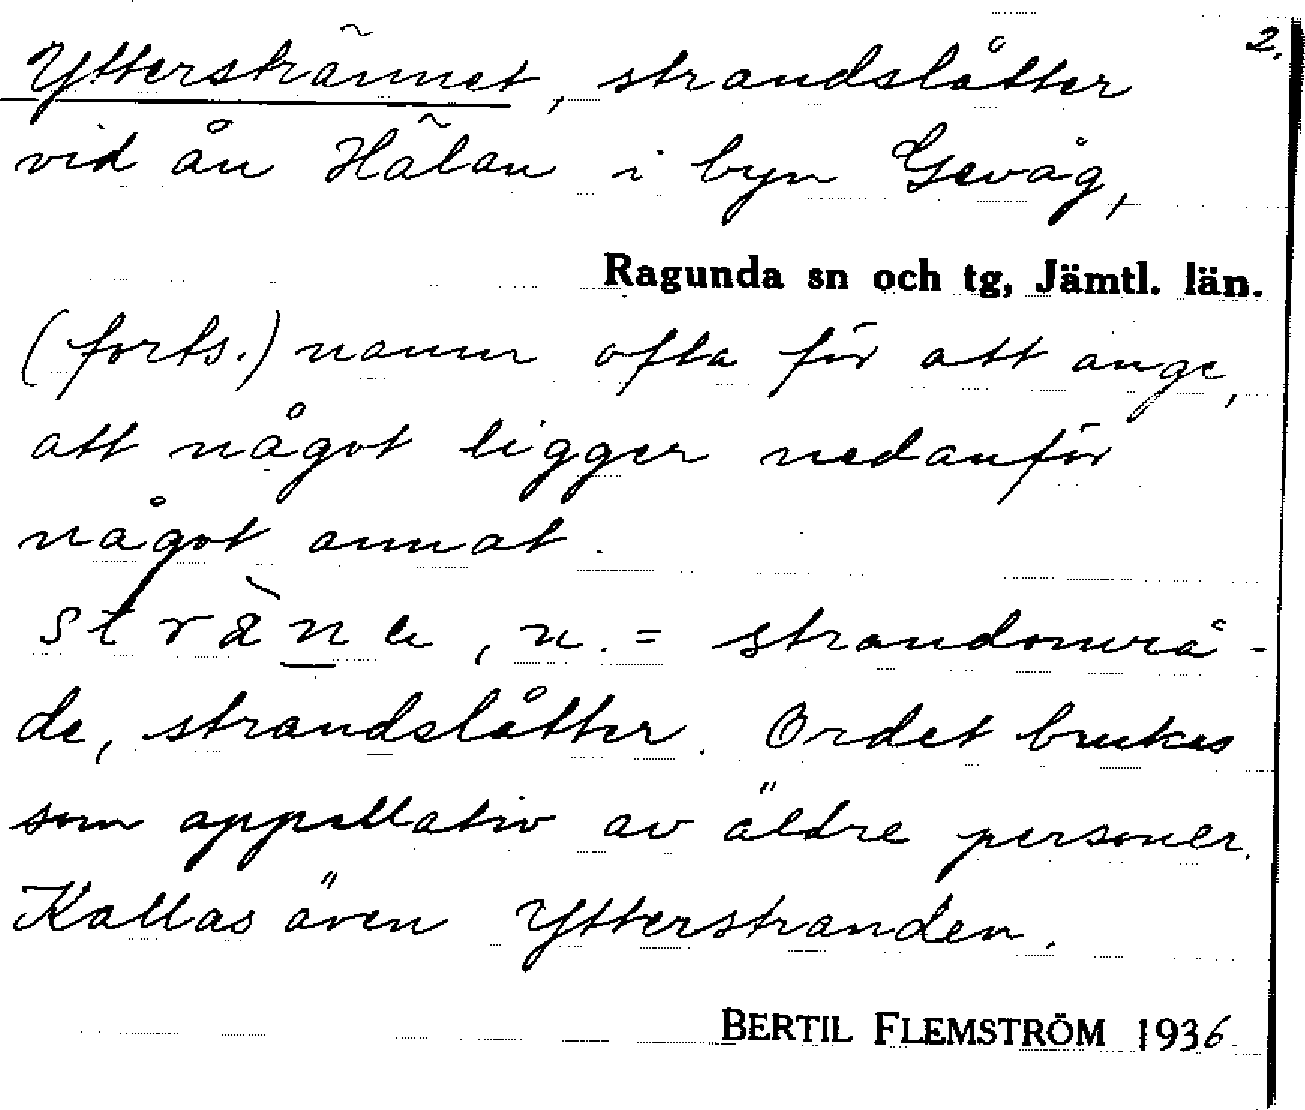 2.
Ytterstrãnnet, strandslåtter
vid ån Hãlan i byn Gevåg,
Ragunda sn och tg, Jämtl. län.
(forts.) namn ofta för att ange,
att något ligger nedanför
något annat.
strä̀ne, n. = strandområ-
de, strandslåtter. Ordet brukas
som appellativ av äldre personer.
Kallas även Ytterstranden.
BERTIL FLEMSTRÖM 1936